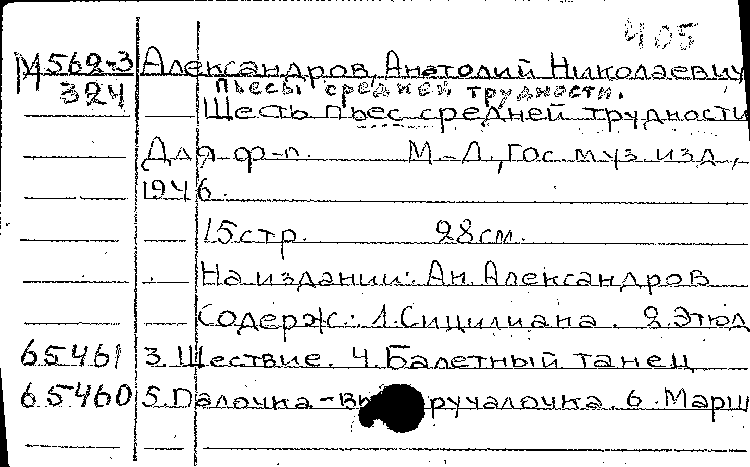 405
М562-3 Александров, Анатолий Николаевич
324 Пьесы средней трудности.
Шесть пьес средней трудности
Для ф-п. М-Л, Гос. муз. изд.,
1946.
15 стр. 28 см.
На издании: Ан. Александров
Содерж: 1. Сицилиана. 2. Этюд
65461 3. Шествие. 4. Балетный танец
65460 5. Палочка-вы ручалочка. 6. Марш